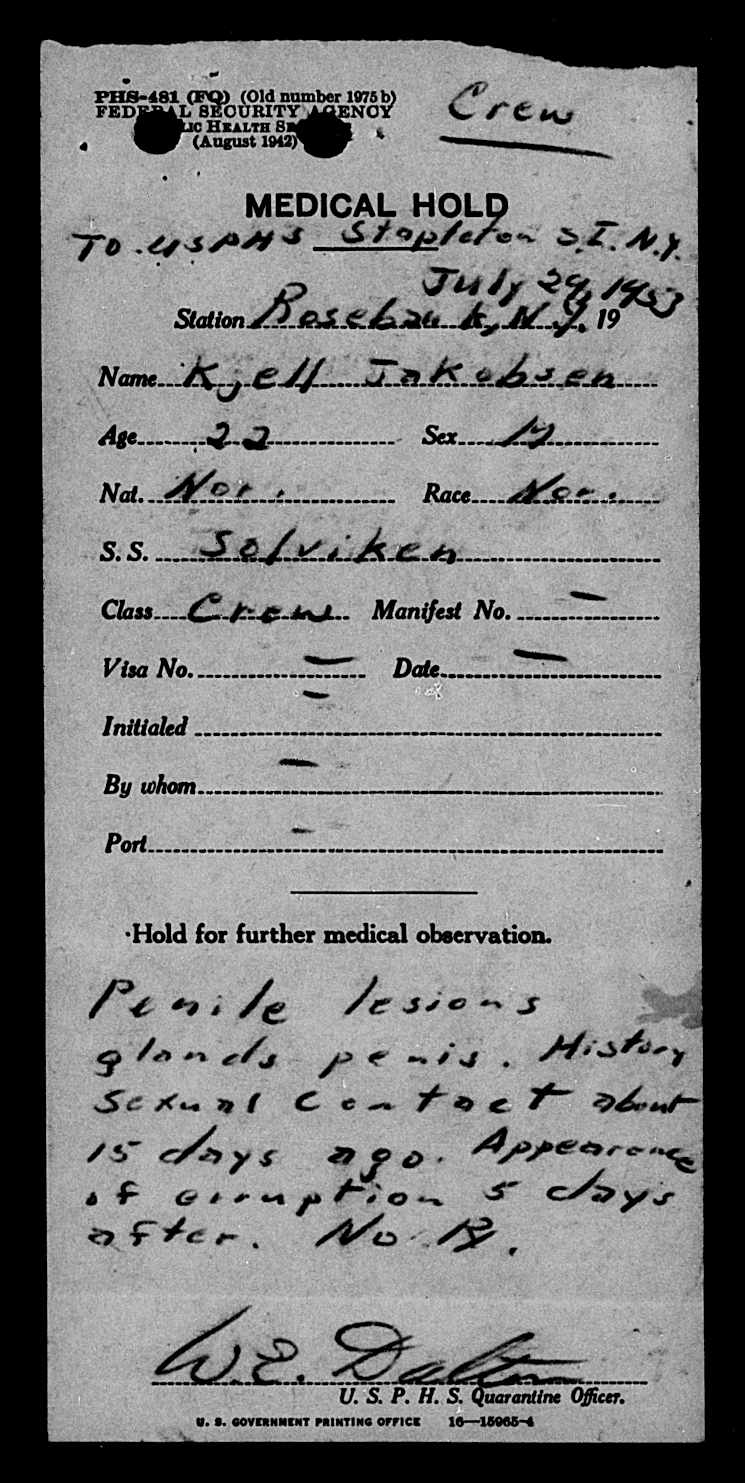 PHS-481 (FQ) (Old number 1975 b)
Crew
FEDERAL SECURITY AGENCY
LIC HEALTH SE
(August 1942)
MEDICAL HOLD
TO USPHS Stapleton S.I. N.Y.
July 29, 1953
Station Rosebank, N.Y. 19
Name Kjell Jakobsen
Age 22 Sex M
Nat. Nor. Race Nor.
S. S. Solviken
Class Crew Manifest No. —
Visa No. — Date —
Initialed —
By whom —
Port -
Hold for further medical observation.
Penile lesions
glands penis. History
sexual contact about
15 days ago. Appearance
of erruption 5 days
after. No Rx.
W.E. Dalton
U. S. P. H. S. Quarantine Officer.
U. S. GOVERNMENT PRINTING OFFICE 16—15965-4